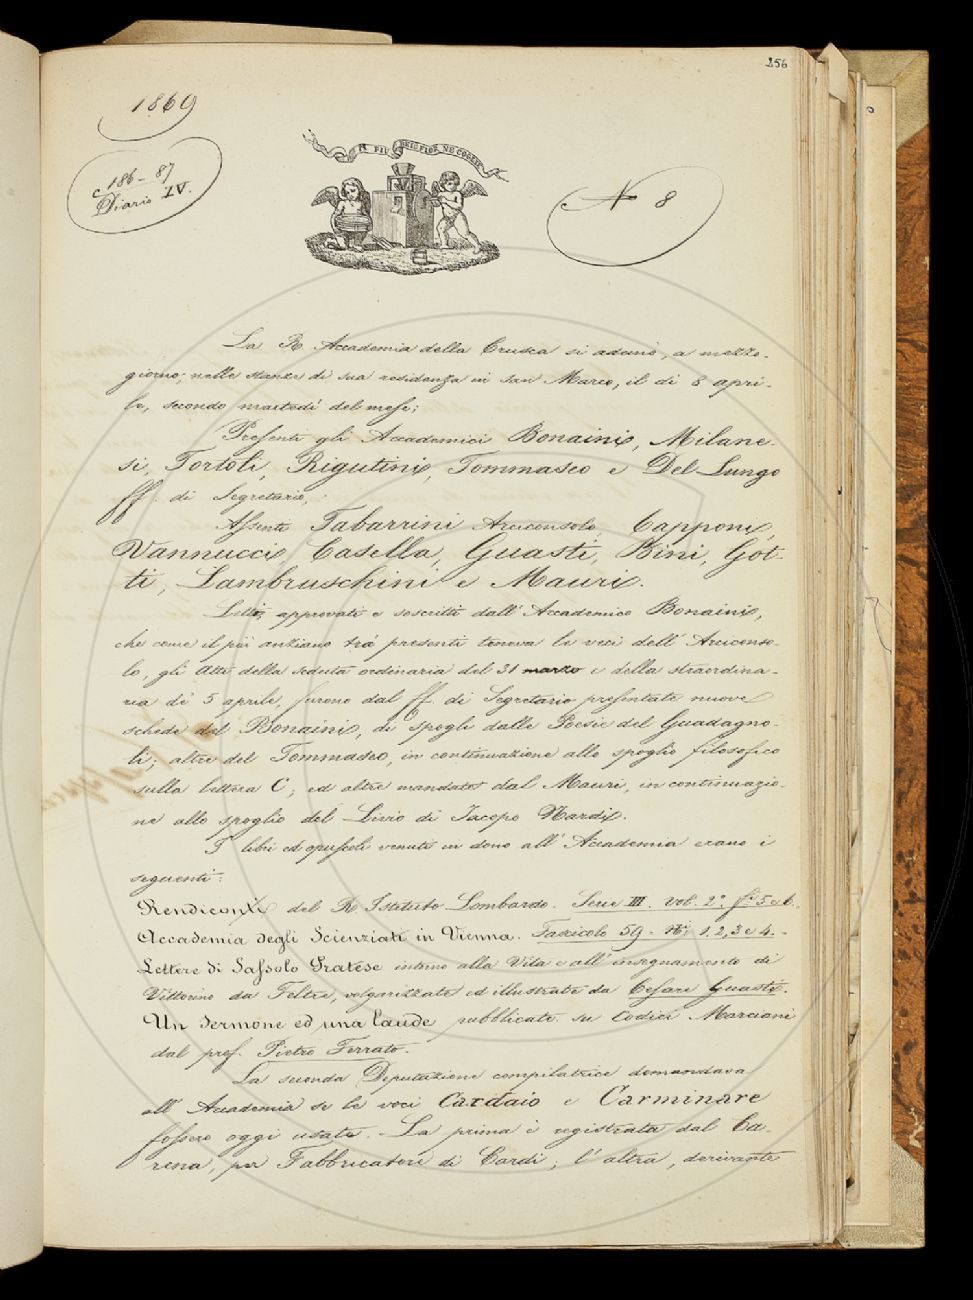 256
1869
c. 186-87
Diario IV.
IL PIÙ BEL FIOR NE COGLIE
N° 8
La R. Accademia della Crusca si adunò, a mezzo-
giorno, nelle stanze di sua residenza in San Marco, il dì 8 apri-
le, secondo martedì del mese;
Presenti gli Accademici Bonaini, Milane-
si, Tortoli, Rigutini, Tommaseo e Del Lungo
ff. di Segretario,
Assenti Tabarrini Arciconsolo, Capponi,
Vannucci, Casella, Guasti, Bini, Got-
ti, Lambruschini e Mauri.
Letti, approvati e soscritti dall'Accademico Bonaini,
che come il più anziano tra' presenti teneva le veci dell'Arciconso-
lo, gli Atti della seduta ordinaria del 31 marzo e della straordina-
ria de' 5 aprile, furono dal ff. di Segretario presentate nuove
schede del Bonaini, di spogli dalle Poesie del Guadagno-
li; altre del Tommaseo, in continuazione allo spoglio filosofico
sulla lettera C; ed altre mandate dal Mauri, in continuazio-
ne allo spoglio del Livio di Jacopo Nardi.
I libri ed opuscoli venuti in dono all'Accademia erano i
seguenti:
Rendiconti del R. Istituto Lombardo. Serie III. vol. 2° fi 5 e 6.
Accademia degli Scienziati in Vienna. Fascicolo 59 - Ni 1, 2, 3 e 4.
Lettere di Sassolo Pratese intorno alla Vita e all'insegnamento di
Vittorino da Feltre, volgarizzate ed illustrate da Cesare Guasti.
Un Sermone ed una Laude pubblicate su Codici Marciani
dal prof. Pietro Ferrato.
La seconda Deputazione compilatrice domandava
all'Accademia se le voci Cardaio e Carminare
fossero oggi usate. La prima è registrata dal Ca-
rena, per Fabbricatore di Cardi; l'altra, derivante